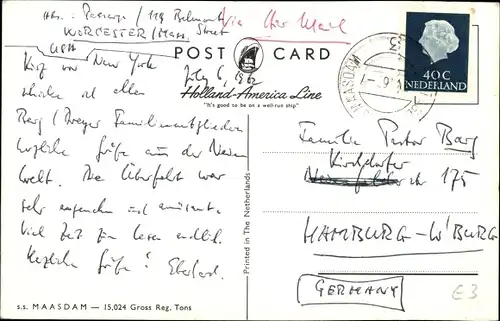 Via Air Mail
Abs.: / 119 Belmont
WORCESTER/Mass. Street
USA
POST CARD
Holland-America Line
"It's good to be on a well-run ship"
40 C
NEDERLAND
MAASDAM
July 6, 1962
Kurz vor New York
allen
Barg / Familienmitgliedern
herzliche Grüße aus der Neuen
Welt. Die Überfahrt war
sehr angenehm und amüsant.
Viel Zeit zum Lesen endlich.
Herzliche Grüße! Eberhard.
Familie Pastor Barg
Kirchdorfer
str 175
HAMBURG-W'BURG
GERMANY
E3
Printed in The Netherlands
s.s. MAASDAM — 15,024 Gross Reg. Tons